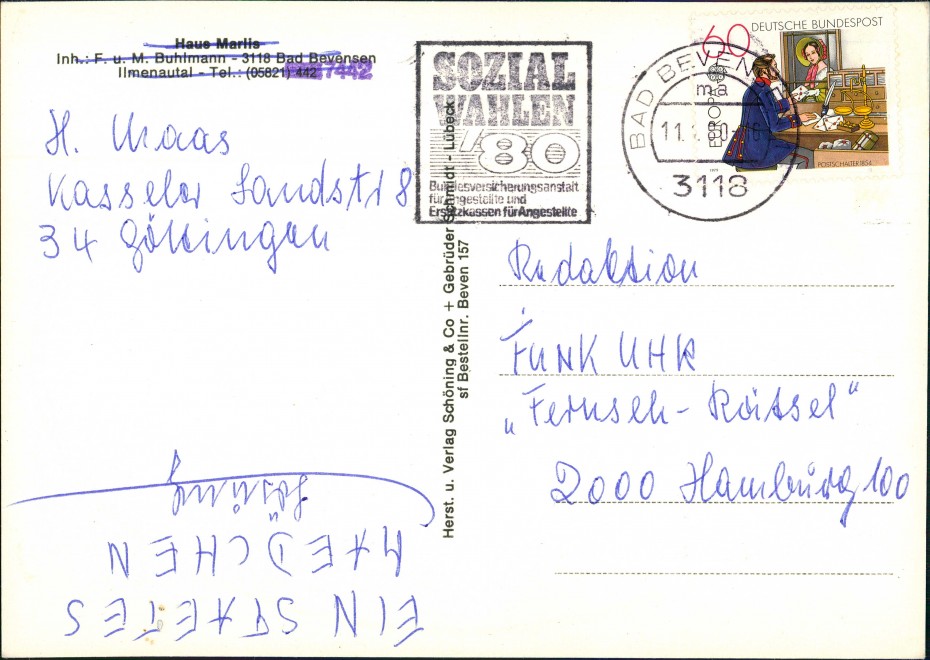 Haus Marlis
Inh.: F. u. M. Buhlmann - 3118 Bad Bevensen
Ilmenautal - Tel.: (05821) 442 7442
H. Maas
Kasseler Landstr 8
34 Göttingen
SOZIAL
WAHLEN
'80
Bundesversicherungsanstalt
für Angestellte und
Ersatzkassen für Angestellte
BAD BEVENSEN
ma
3118
60 DEUTSCHE BUNDESPOST
EUROPA
POSTSCHALTER 1854
Herst. u. Verlag Schöning & Co + Gebrüder Schmidt - Lübeck
sf BestellNr. Beven 157
Redaktion
FUNK UHR
„Fernseh-Rätsel“
2000 Hamburg 100
EIN SPAETES
MAEDCHEN
Lösung